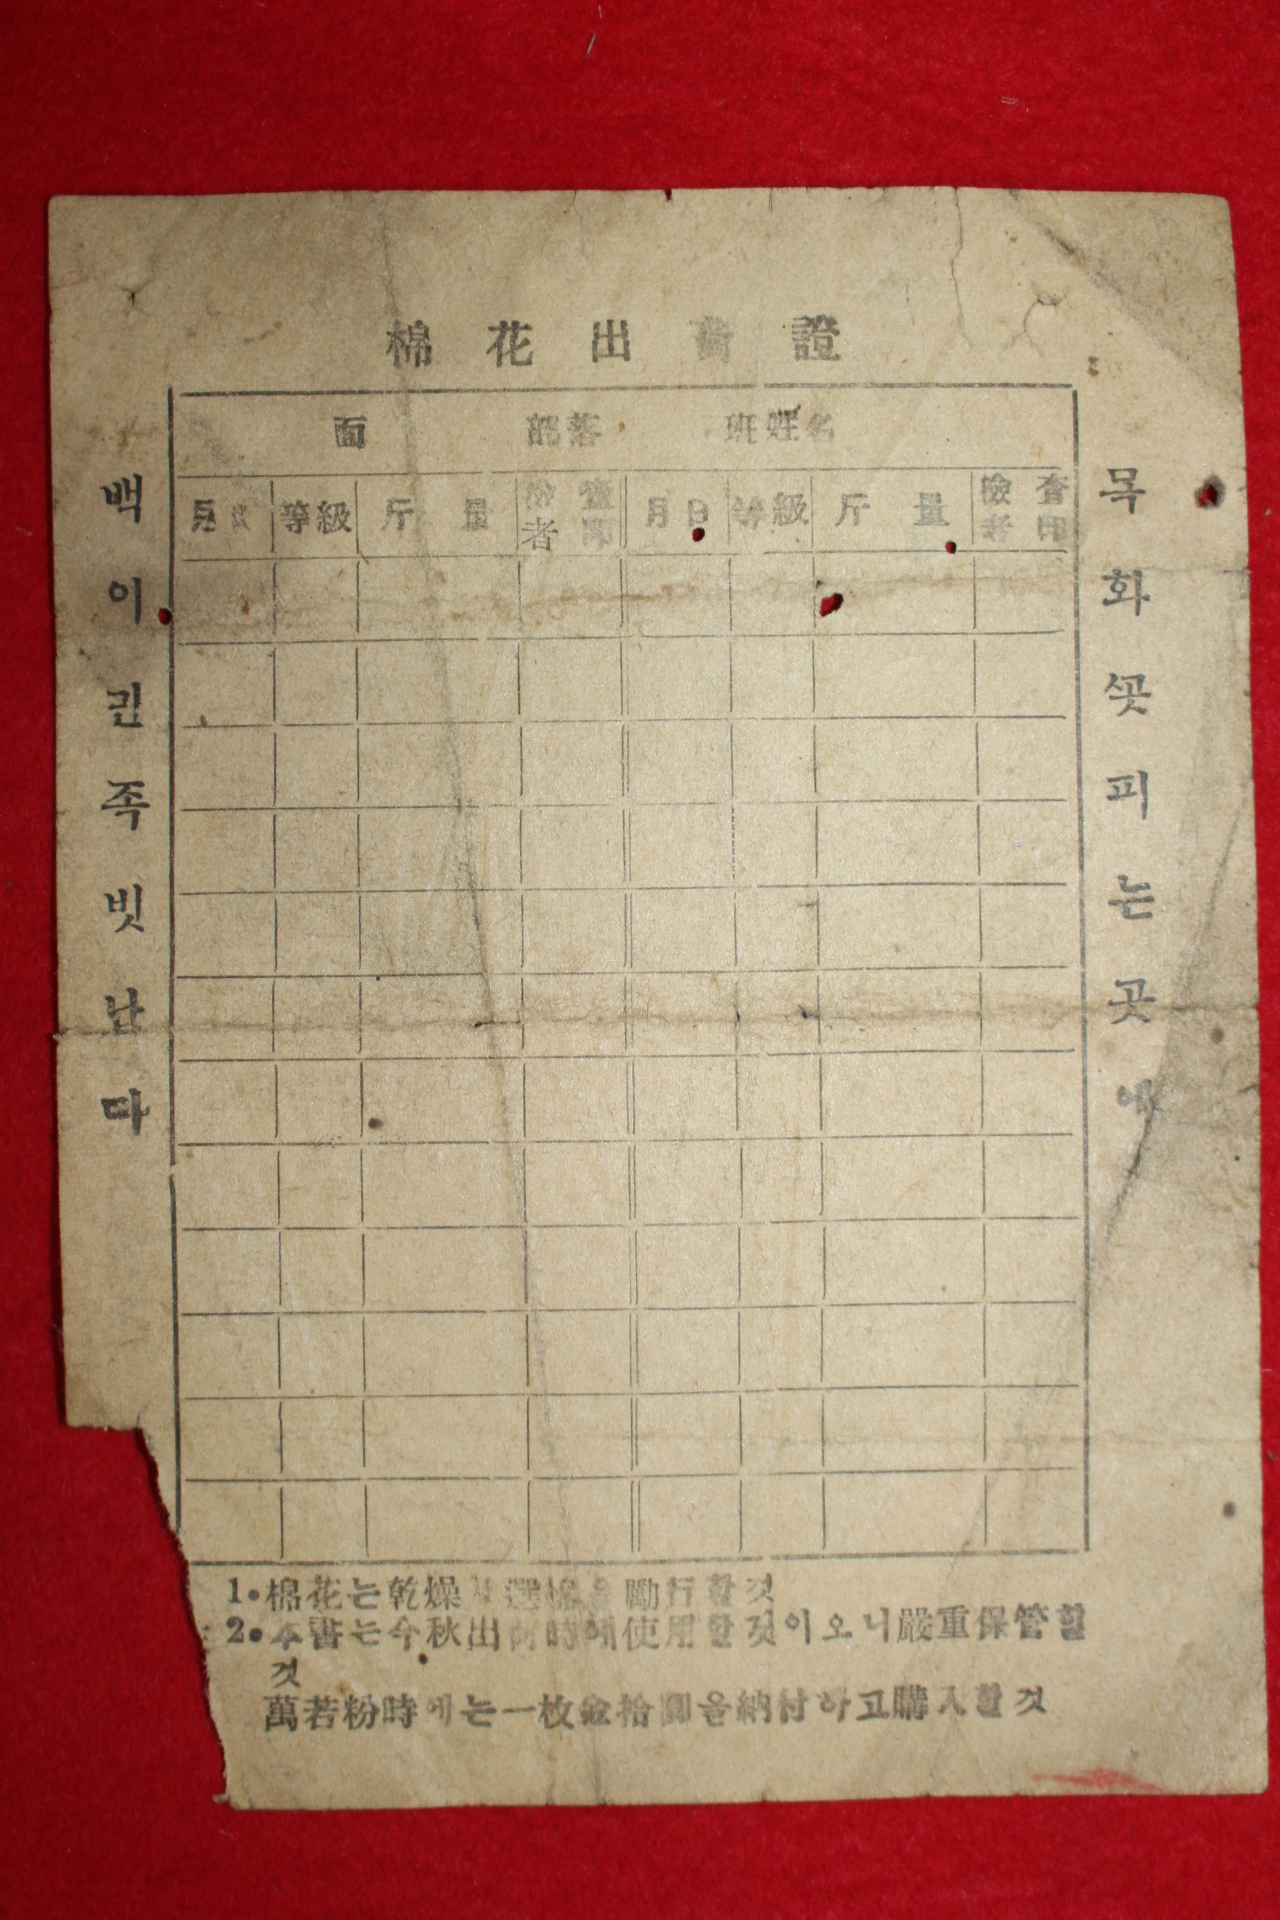 棉花出荷證
面 部落 班姓名
月日 等級 斤量 檢查者印 月日 等級 斤量 檢查者印
목화꼿피는곳에
백이민족빗난다
1. 棉花는乾燥 選棉을勵行할것
2. 本書는今秋出荷時에使用할것이오니嚴重保管할
것
萬若粉時에는一枚金拾圓을納付하고購入할것